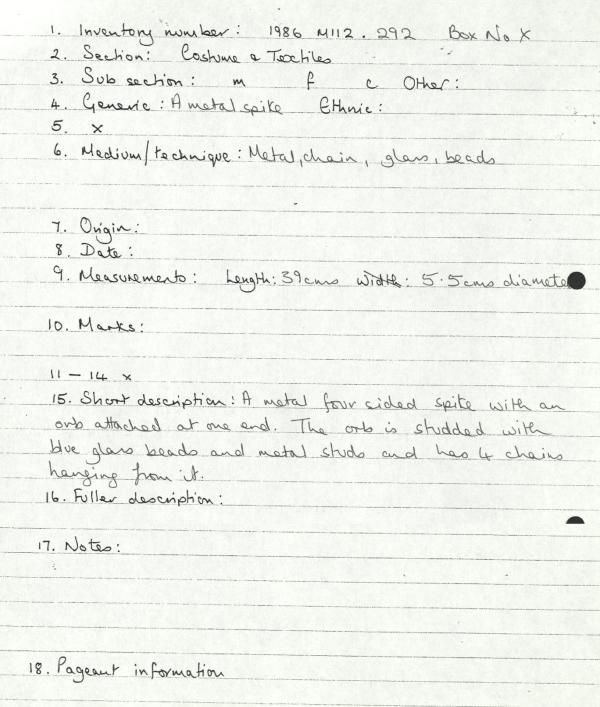 1. Inventory number: 1986 M112.292 Box No X
2. Section: Costume & Textiles
3. Sub section: m f c Other:
4. Generic: A metal spike Ethnic:
5. x
6. Medium/technique: Metal, chain, glass, beads
7. Origin:
8. Date:
9. Measurements: Length: 39cms width: 5.5cms diameter
10. Marks:
11 – 14 x
15. Short description: A metal four sided spite with an
orb attached at one end. The orb is studded with
blue glass beads and metal studs and has 4 chains
hanging from it.
16. Fuller description:
17. Notes:
18. Pageant information